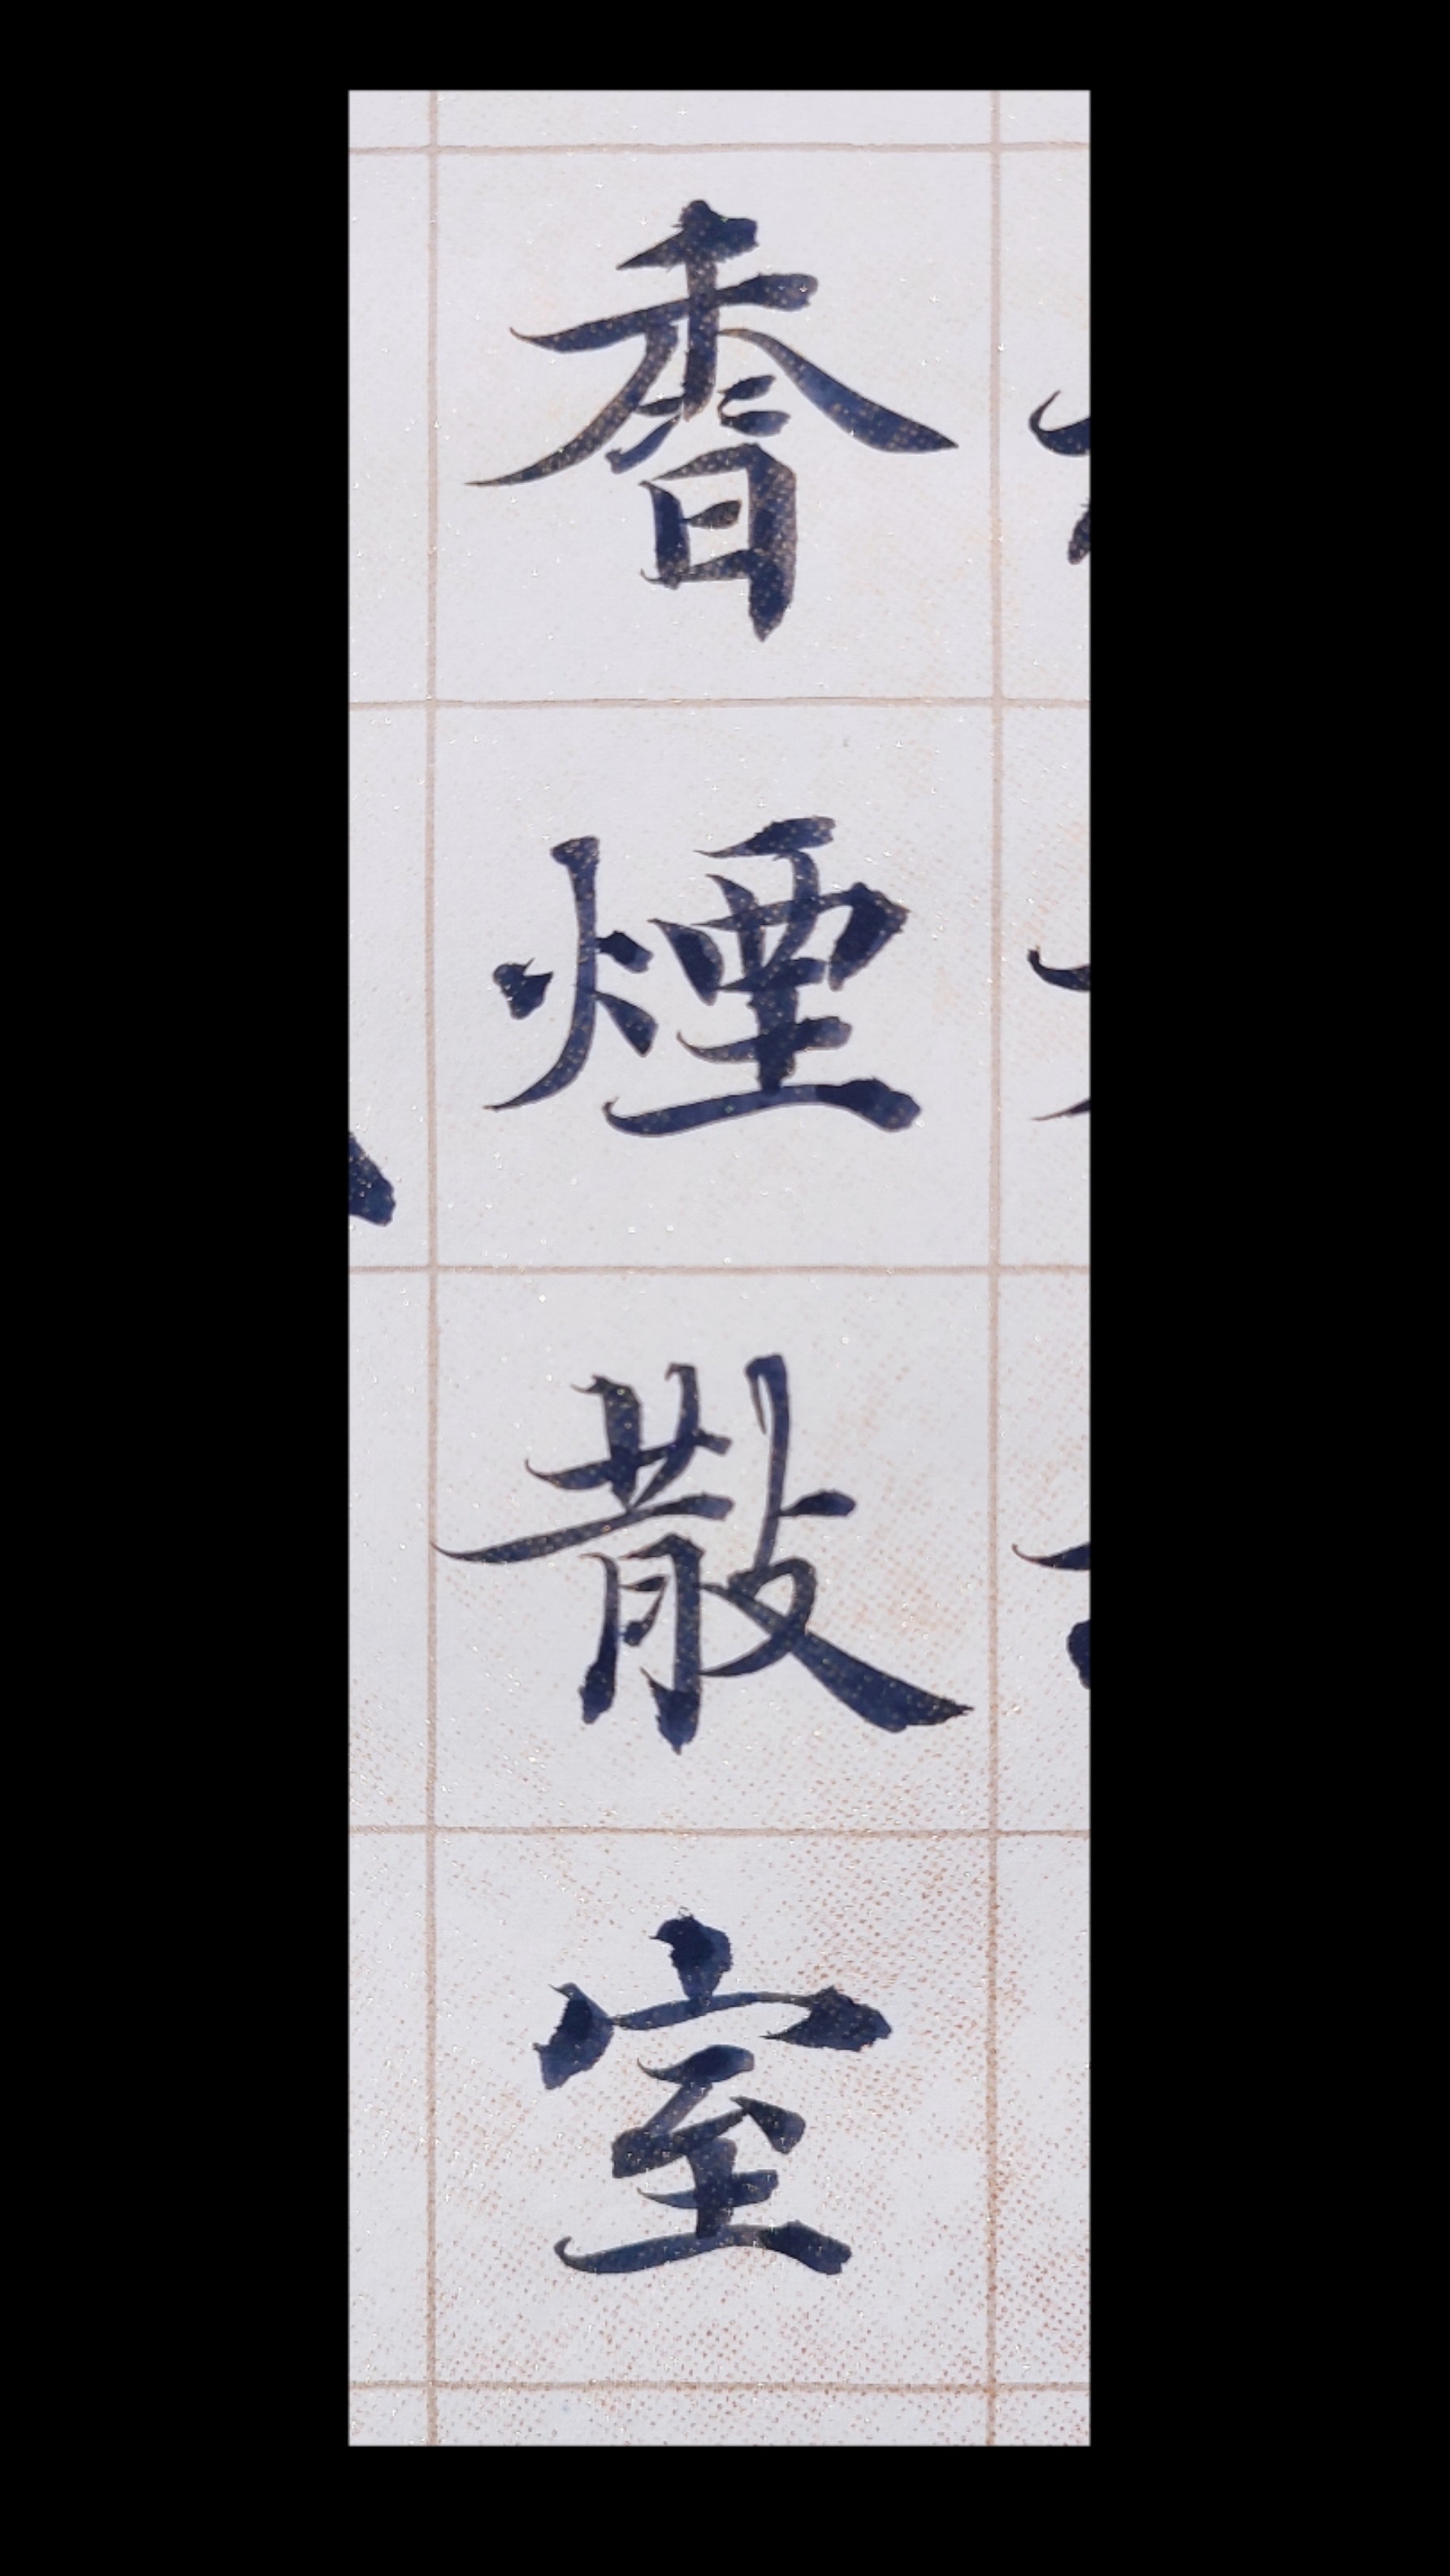 香煙散室